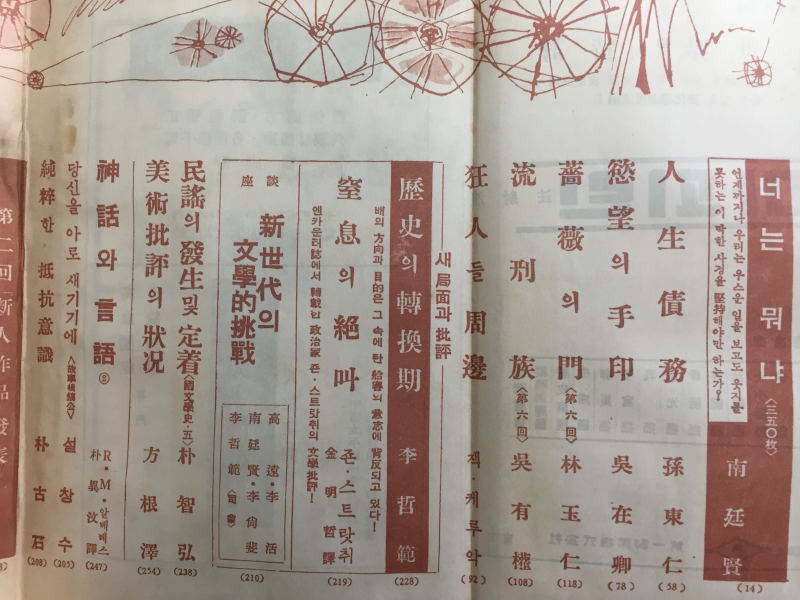 너는 뭐냐 <三五〇枚> 南廷賢 (14)
언제까지나 우리는 우스운 일을 보고도 웃지를
못하는 이 딱한 사정을 堅持해야만 하는가?
人生債務 孫東仁 (58)
慾望의 手印 吳在卿 (78)
薔薇의 門 <第六回> 林玉仁 (118)
流刑族 <第六回> 吳有權 (108)
狂人들 周邊 잭·케루악 (92)
새 局面과 批評
歷史의 轉換期 李哲範 (228)
배의 方向과 目的은 그 속에 탄 船客의 意志에 背反되고 있다!
窒息의 絕叫 죤·스트랏취 金明哲 譯 (219)
엔카운터誌에서 轉載한 政治家 죤·스트랏취의 文學批評!
座談
新世代의
文學的挑戰
高遠·李活
南廷賢·李尙斐
李哲範 <司會>
(210)
民謠의 發生 및 定着 <國文學史·五> 朴智弘 (238)
美術批評의 狀況 方根澤 (254)
神話와 言語 ② R·M·알베레스 朴異汶 譯 (247)
당신을 아로 새기기에 설창수 (205)
純粹한 抵抗意識 朴古石 (208)
第二回 新人作品 發表